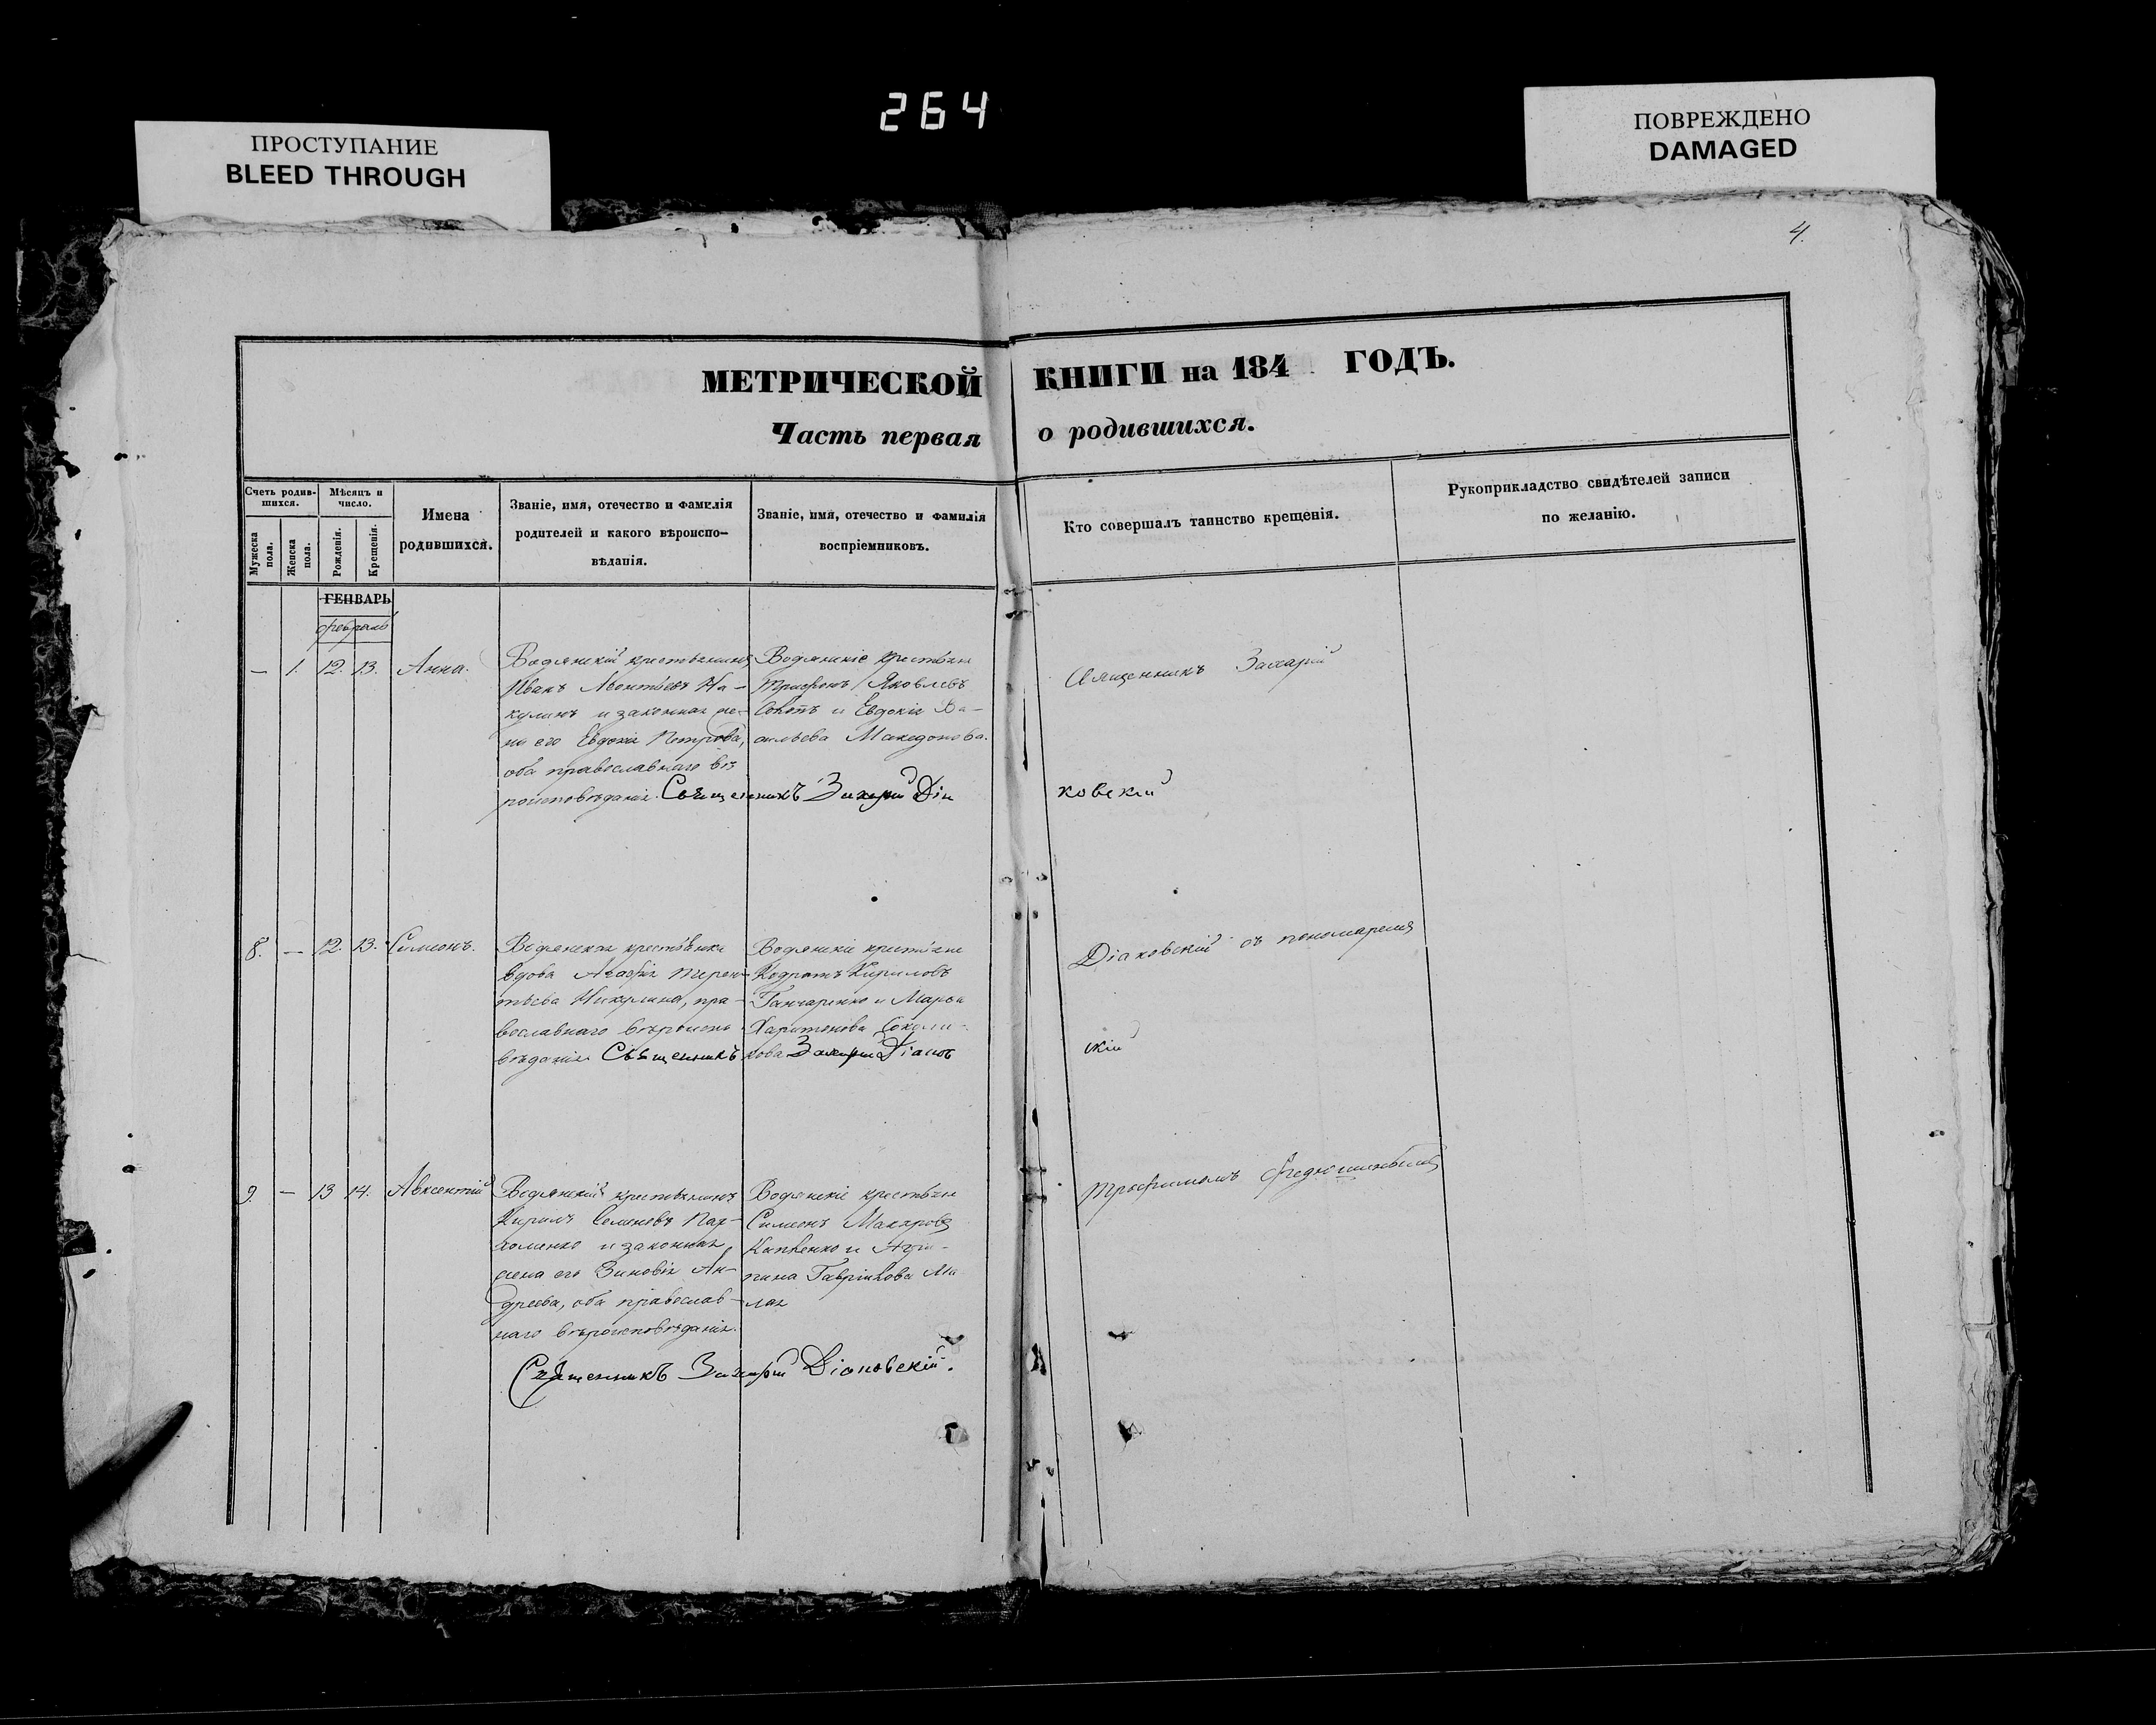 264
ПРОСТУПАНИЕ
BLEED THROUGH
ПОВРЕЖДЕНО
DAMAGED
4.
МЕТРИЧЕСКОЙ КНИГИ на 184 ГОДЪ.
Часть первая о родившихся.
Счетъ родив-
шихся.
Мужеска пола.
Женска пола.
Мѣсяцъ и
число.
Рожденія.
Крещенія.
Имена
родившихся.
Званіе, имя, отечество и фамилія
родителей и какого вѣроиспо-
вѣданія.
Званіе, имя, отечество и фамилія
воспріемниковъ.
Кто совершалъ таинство крещенія.
Рукоприкладство свидѣтелей записи
по желанію.
ГЕНВАРЬ
февраль
— 1. 12. 13. Анна.
Водянскій крестьянинъ
Иванъ Леонтьевъ На-
кулинъ и законная же-
на его Евдокія Петрова,
оба православнаго вѣ
роисповѣданія.
Водянскіе крестьяне
Трифонъ Яковлевъ
и Евдокія Ва-
сильева Македонова.
Священникъ Захарій
Священникъ Захарій Діа
ковскій
8. — 12. 13. Симеонъ.
Водянская крестьянка
вдова Агафія Терен-
тьева Никулина, пра-
вославнаго вѣроиспо
вѣданія
Водянскіе крестьяне
Кодратъ Кириловъ
Ганчаренко и Марѳа
Харитонова Соколи-
кова
Діаковскій съ пономаремъ
Священникъ Захарій Діаков
скій
9. — 13 14. Авксентій
Водянскій крестьянинъ
Кирилъ Семеновъ Пар-
хоменко и законная
жена его Зиновія Ан-
дреева, оба православ-
наго вѣроисповѣданія.
Водянскіе крестьяне
Симеонъ Макаровъ
и Агри-
пина Гаврилова Ма
лая
Трофимомъ
Священникъ Захарій Діаковскій.